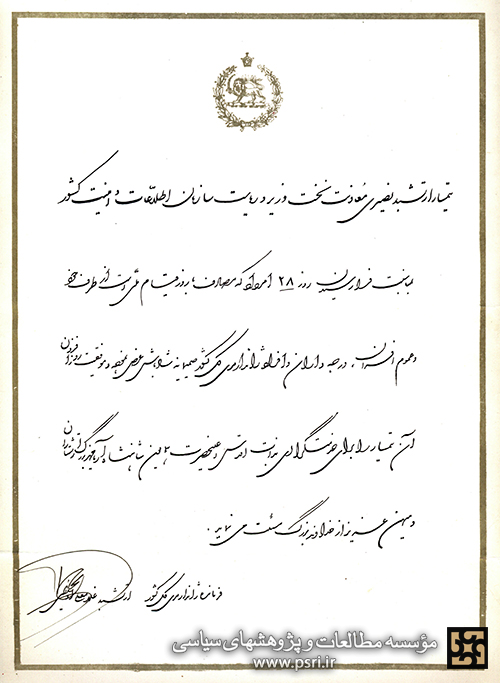 تیمسار ارتشبد نصیری معاونت نخست وزیر و ریاست سازمان اطلاعات و امنیت کشور
بمناسبت فرا رسیدن روز ۲۸ امرداد که مصادف با روز قیام ملی است از طرف خود
و عموم افسران، درجه داران و افراد ژاندارمری کل کشور صمیمانه شادباش عرض نموده و موفقیت روزافزون
آن تیمسار را برای خدمتگزاری به ذات اقدس اعلیحضرت همایون شاهنشاه آریامهر بزرگ ارتشتاران
و میهن عزیز از خداوند بزرگ مسئلت می نماید.
فرمانده ژاندارمری کل کشور ارتشبد
مؤسسه مطالعات و پژوهشهای سیاسی
www.psri.ir